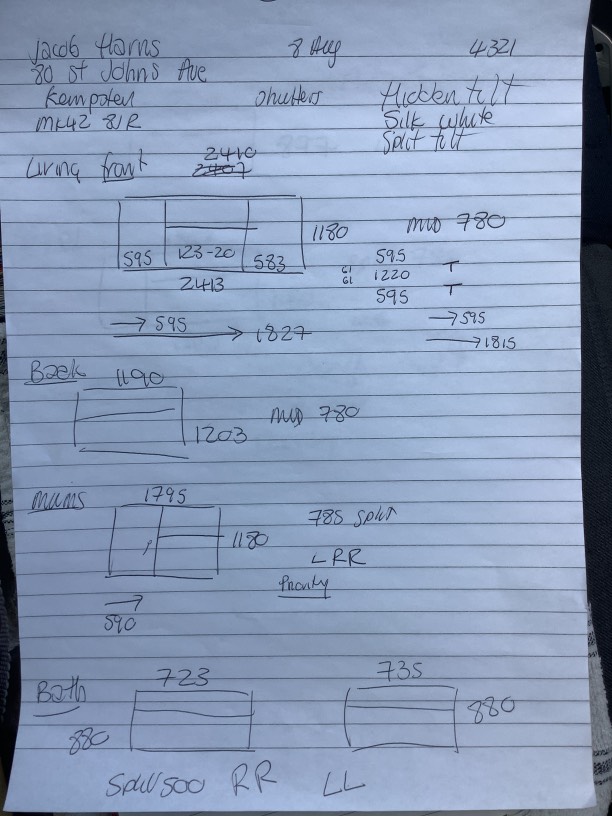 Jacob Harris 8 Aug 4321
80 St Johns Ave
Kempston Shutters Hidden tilt
MK42 8JR Silk white
Split tilt
Living front 2410
2407
1180 MID 780
595 123-20 583
2413
595 T
61 1220
61 595 T
→ 595
→ 1827
→ 595
→ 1815
Back 1190
1203 MID 780
Mums 1795
1180 785 split
LRR
Priority
→
590
Bath 723 735
880 880
Split 500 RR LL